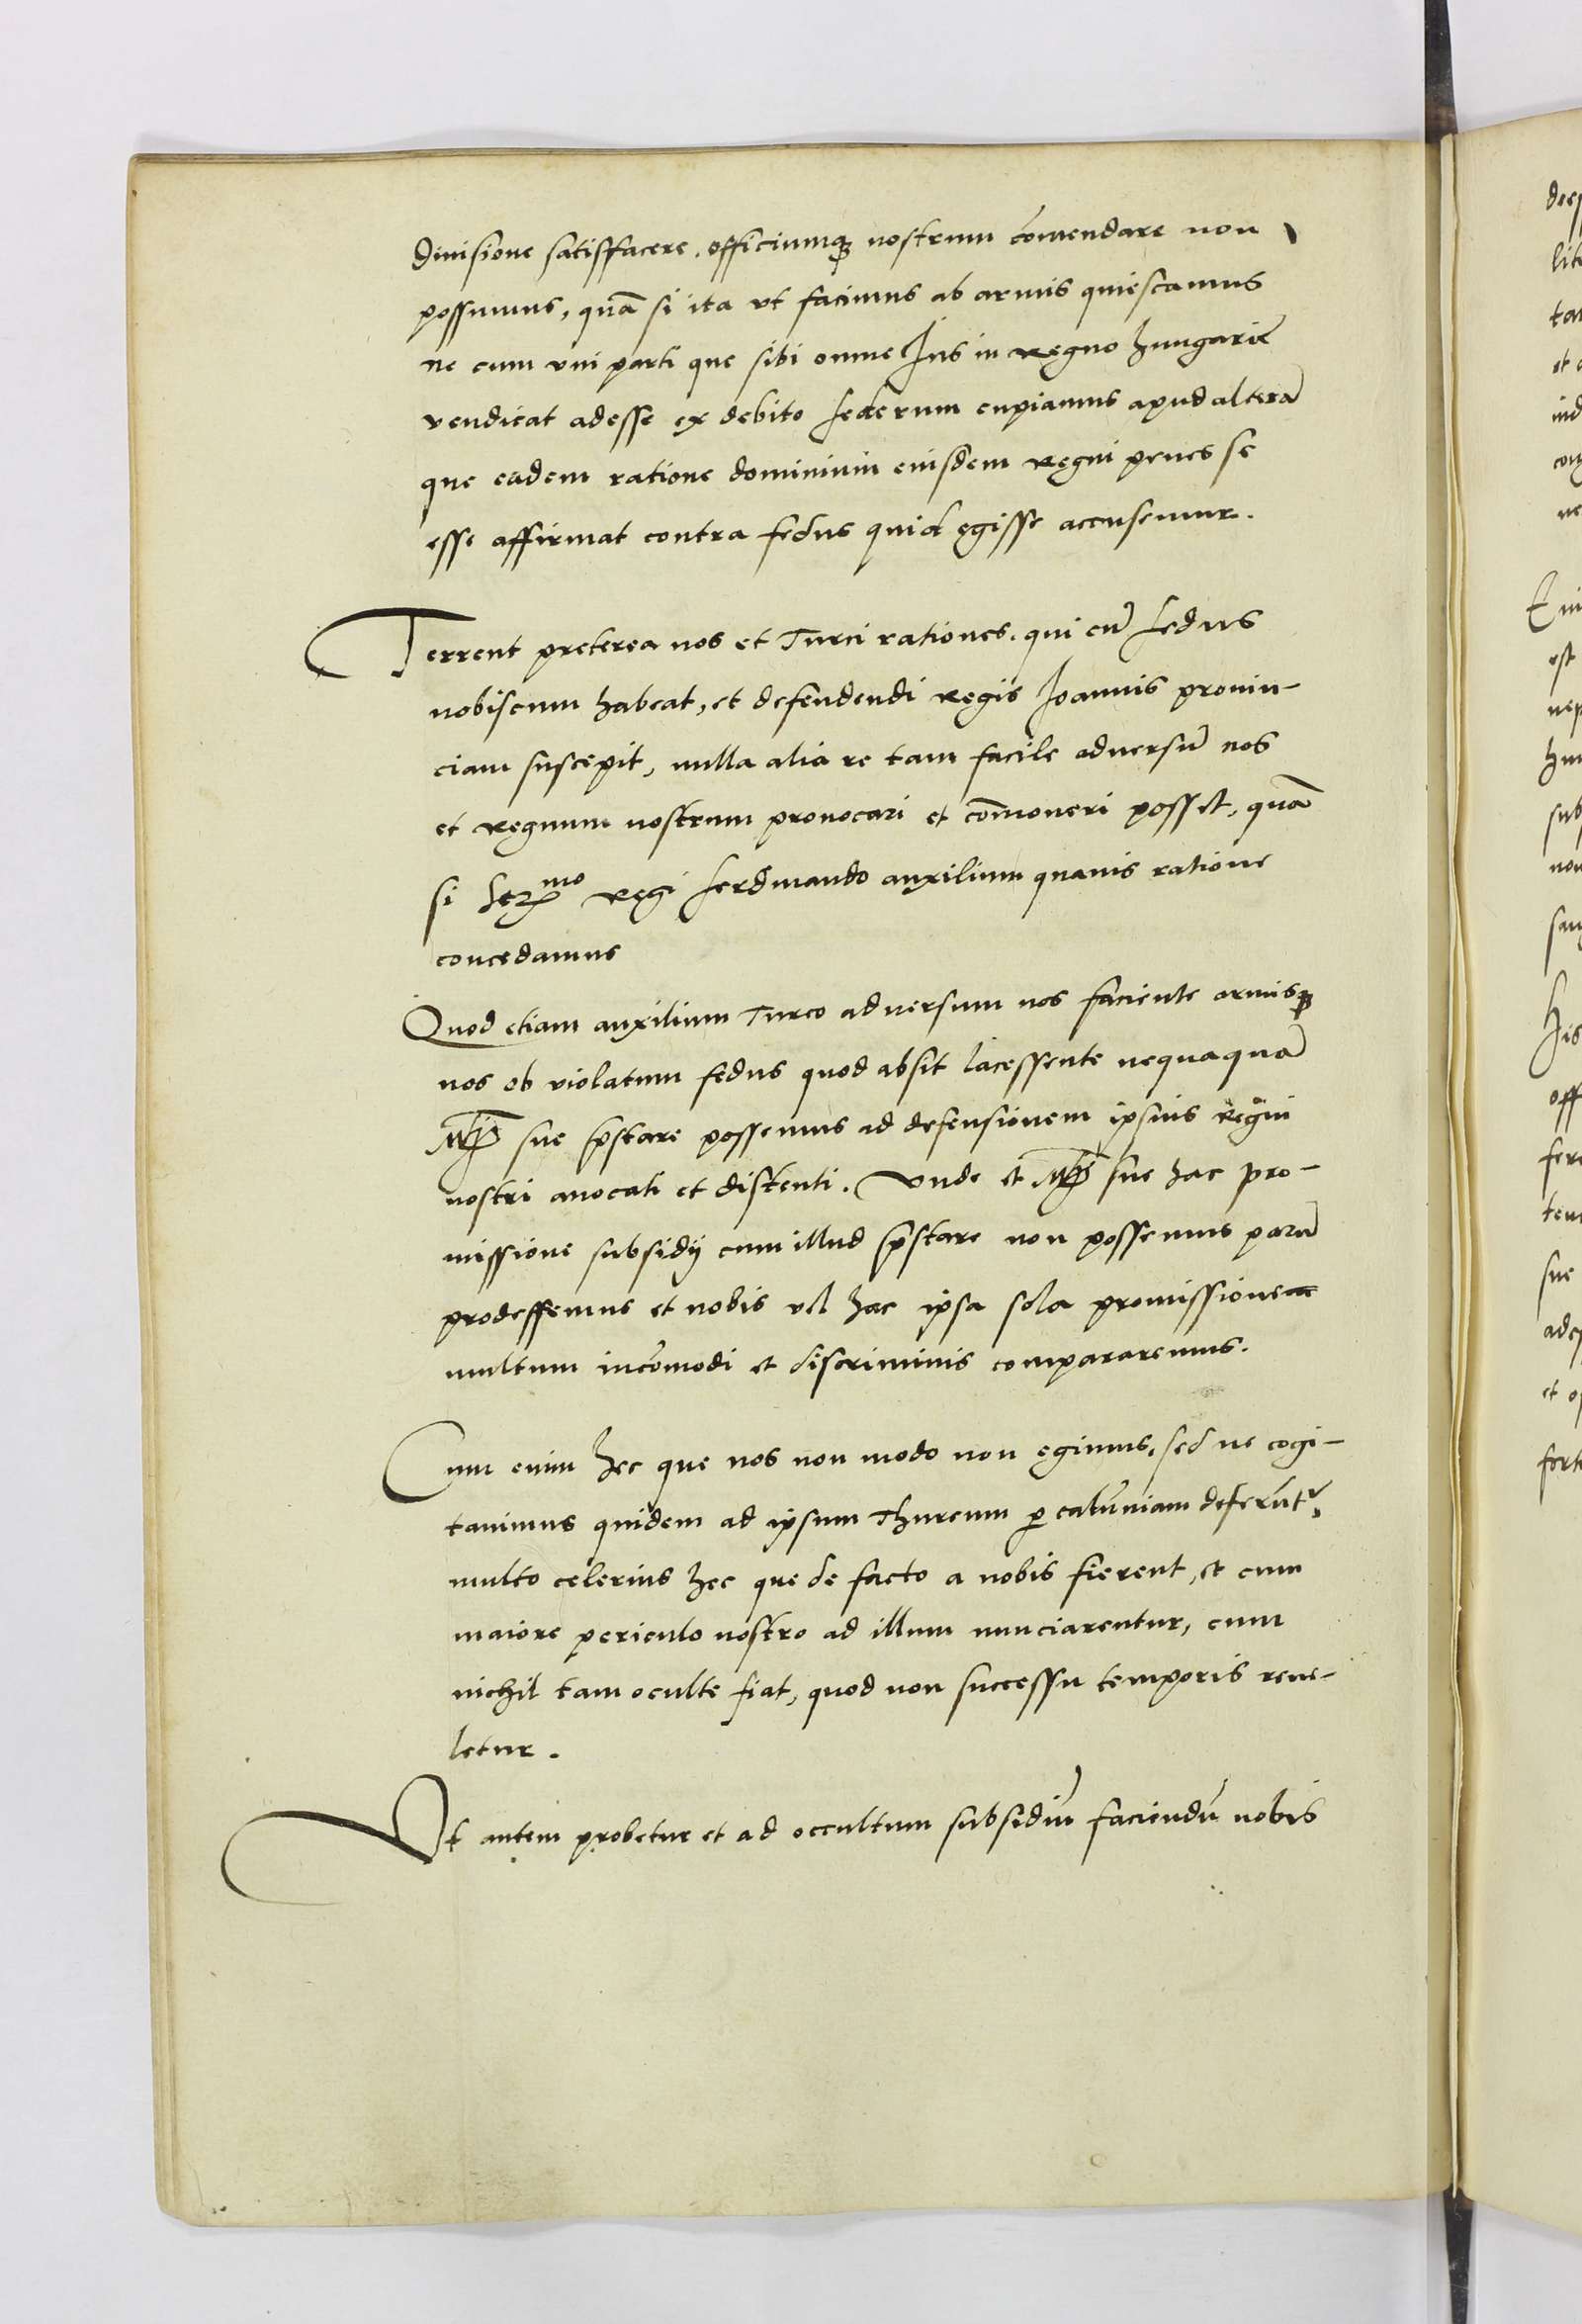 diuisione satisffacere. officiumq₃ nostrum cōmendare non
possumus, quā si ita vt facimus ab armis quiescamus
ne cum vni parti que sibi omne Jus in Regno hungarie
vendicat adesse ex debito federum cupiamus apud alterā
que eadem ratione dominium eiusdem Regni penes se
esse affirmat contra fedus quid egisse accusemur.
Terrent preterea nos et Turci rationes. qui cū fedus
nobiscum habeat, et defendendi Regis Joannis prouin-
ciam suscepit, nulla alia re tam facile aduersū nos
et Regnum nostrum prouocari et cōmoueri posset, quā
si Serᵐᵒ Regi ferdinando auxilium quauis ratione
concedamus
Quod etiam auxilium Turco aduersum nos faciente armisq₃
nos ob violatum fedus quod absit lacessente nequaquā
Mti sue p̄stare possemus ad defensionem ipsius Regni
nostri auocati et distenti. Vnde et Mti sue hac pro-
missione subsidij cum illud p̄stare non possemus parū
prodessemus et nobis vel hac ipsa sola promissione
multum incōmodi et discriminis compararemus.
Cum enim hec que nos non modo non egimus, sed ne cogi-
tauimus quidem ad ipsum Thurcum p calūniam deferūtʳ,
multo celerius hec que de facto a nobis fierent, et cum
maiore periculo nostro ad illum nunciarentur, cum
nichil tam oculte fiat, quod non successu temporis reue-
letur.
Vt autem probetur et ad occultum subsidiū faciendū nobis